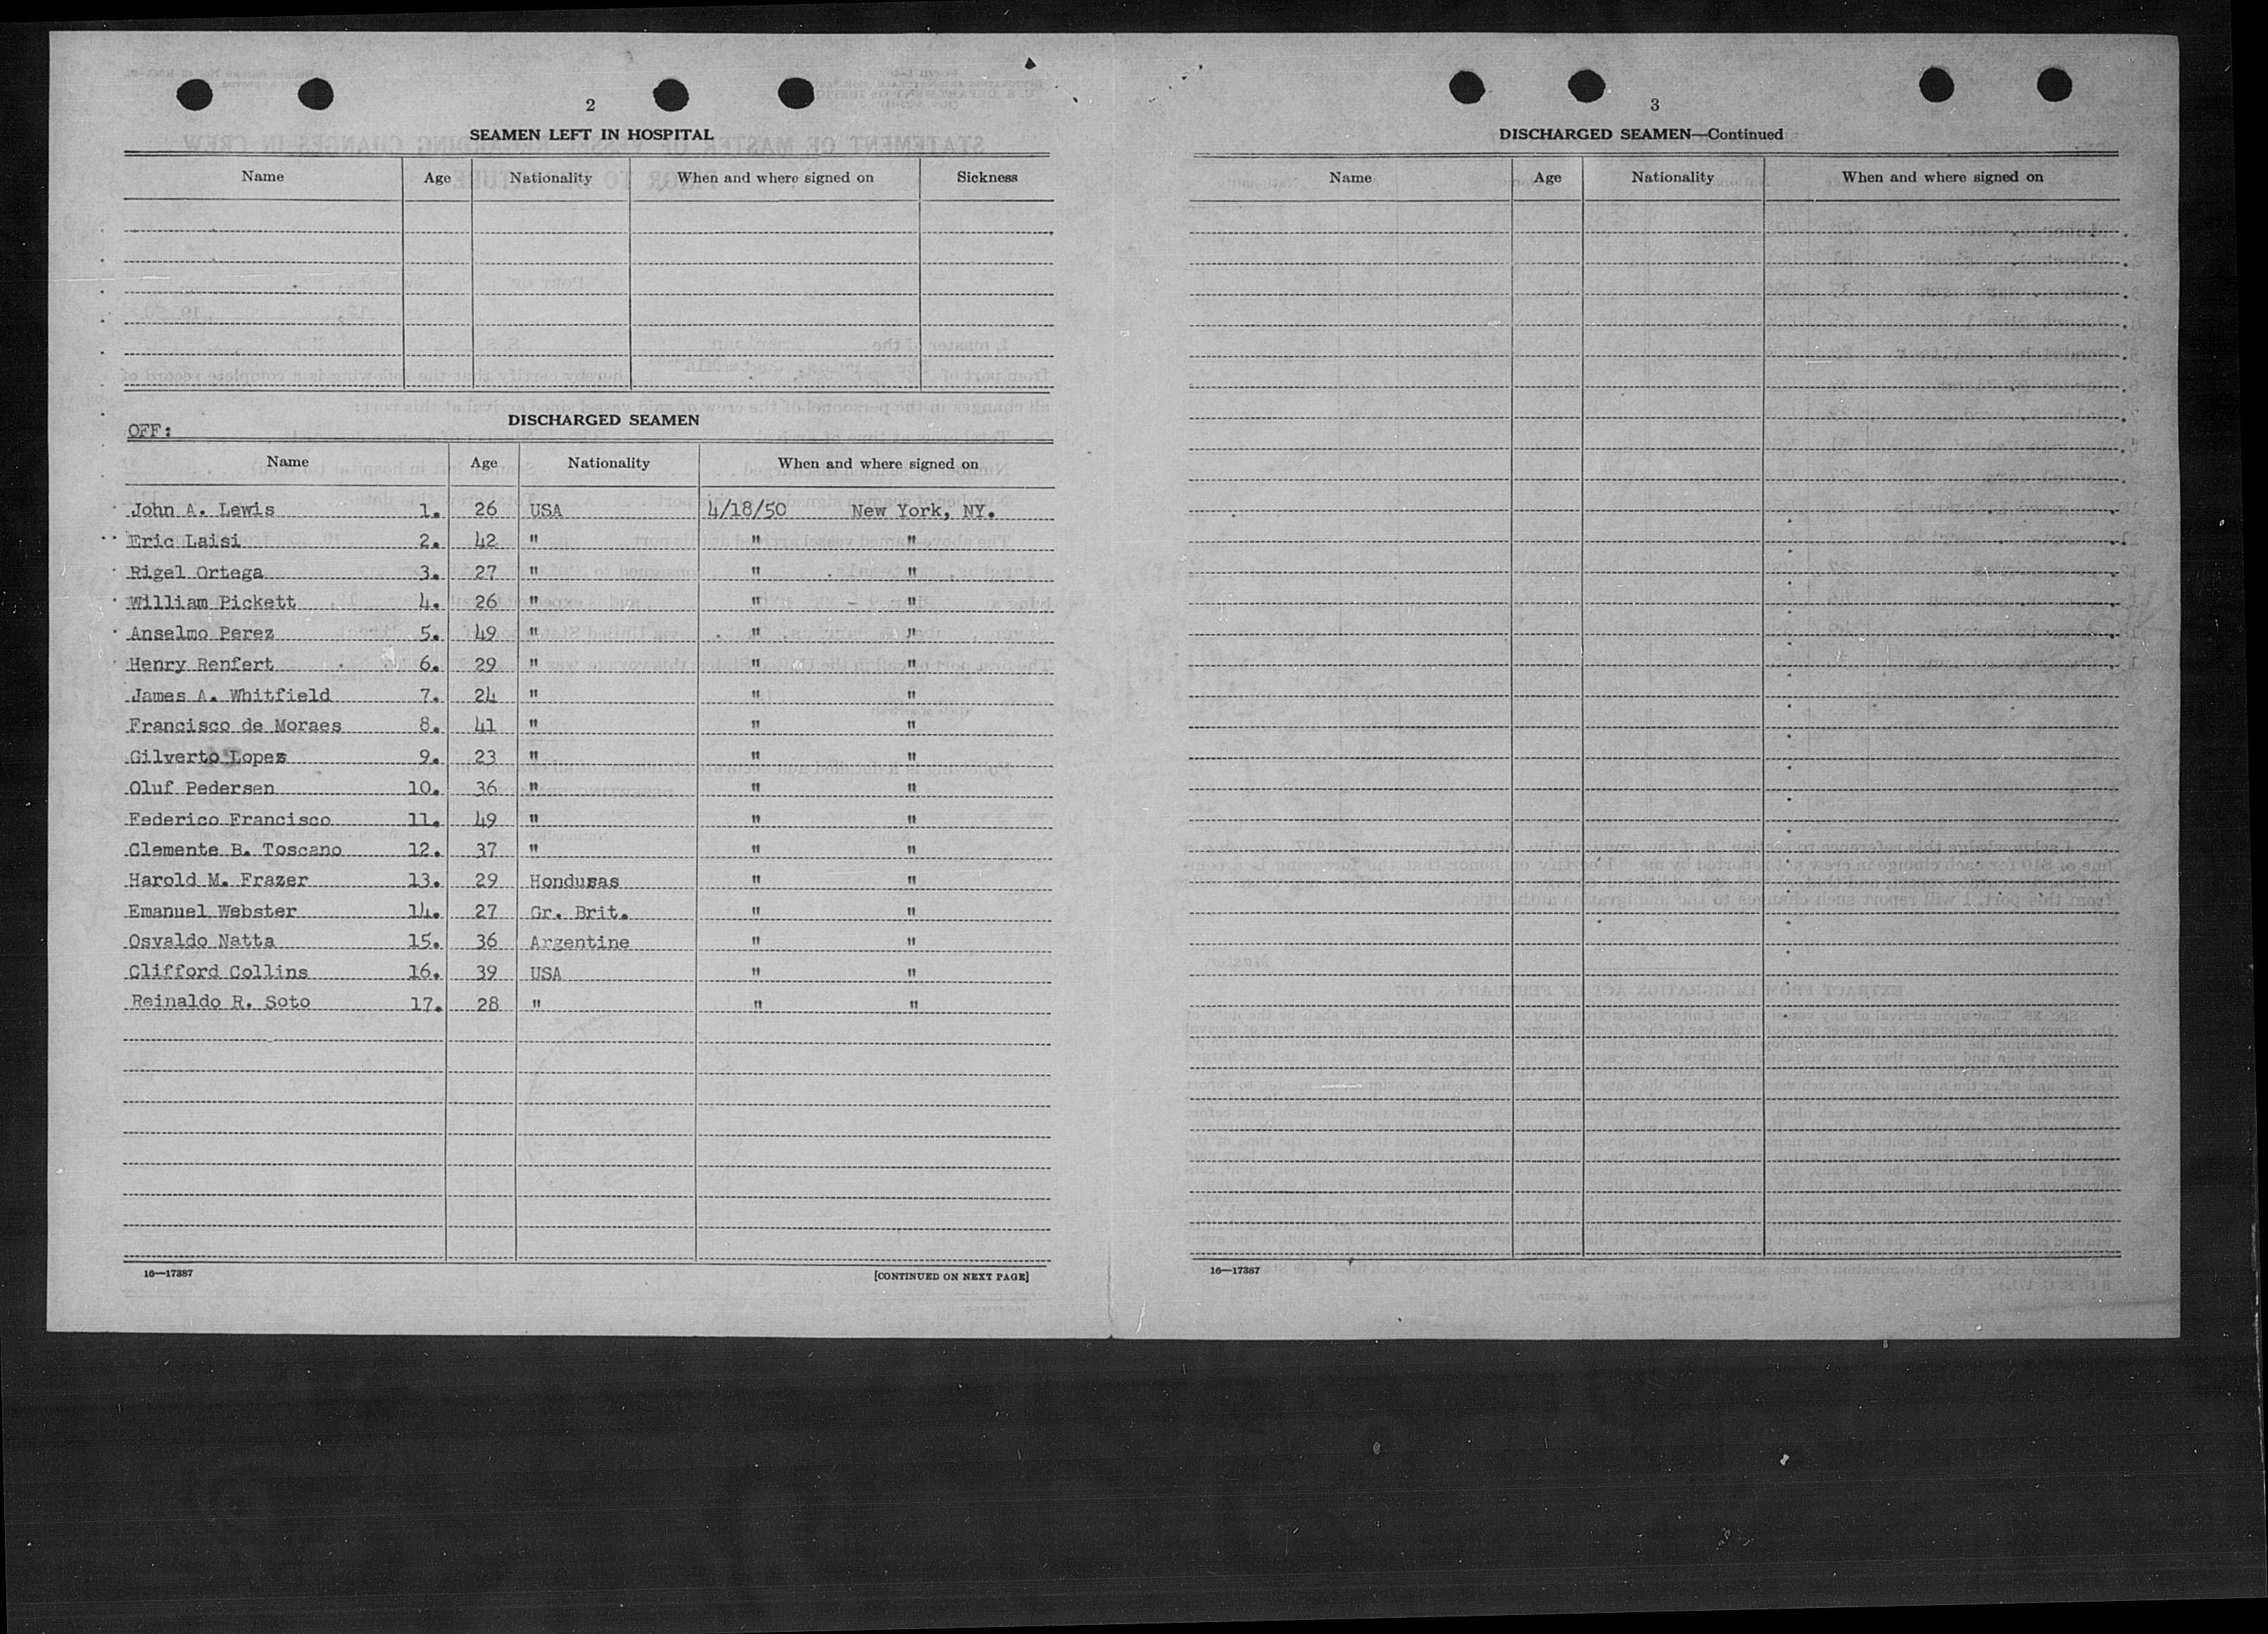 2
SEAMEN LEFT IN HOSPITAL
Name Age Nationality When and where signed on Sickness
OFF:
DISCHARGED SEAMEN
Name Age Nationality When and where signed on
John A. Lewis 1. 26 USA 4/18/50 New York, NY.
Eric Laisi 2. 42 " " "
Rigel Ortega 3. 27 " " "
William Pickett 4. 26 " " "
Anselmo Perez 5. 49 " " "
Henry Renfert 6. 29 " " "
James A. Whitfield 7. 24 " " "
Francisco de Moraes 8. 41 " " "
Gilverto Lopez 9. 23 " " "
Oluf Pedersen 10. 36 " " "
Federico Francisco 11. 49 " " "
Clemente B. Toscano 12. 37 " " "
Harold M. Frazer 13. 29 Honduras " "
Emanuel Webster 14. 27 Gr. Brit. " "
Osvaldo Natta 15. 36 Argentine " "
Clifford Collins 16. 39 USA " "
Reinaldo R. Soto 17. 28 " " "
16—17387 [CONTINUED ON NEXT PAGE]
3
DISCHARGED SEAMEN—Continued
Name Age Nationality When and where signed on
16—17387